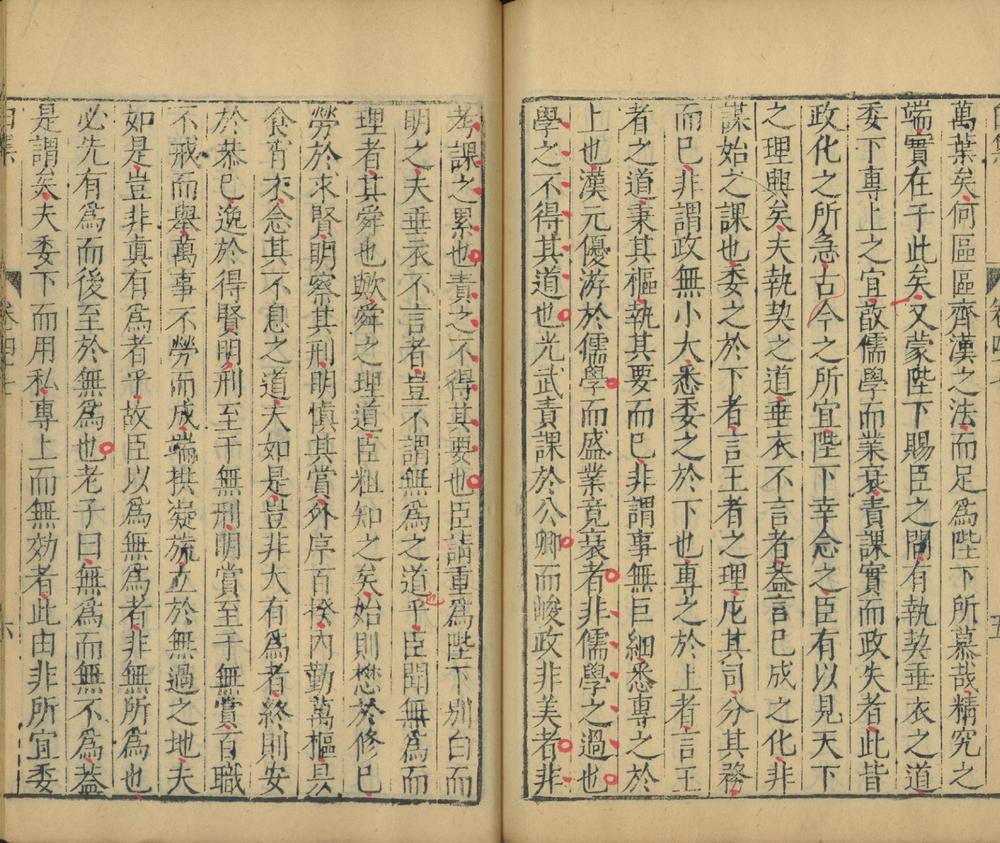 萬葉矣何區區齊漢之法而足爲陛下所慕哉精究之
端實在于此矣又蒙陛下賜臣之問有執契垂衣之道
委下專上之宜敦儒學而業衰責課實而政失者此皆
政化之所急古今之所宜陛下幸念之臣有以見天下
之理興矣夫執契之道垂衣不言者蓋言已成之化非
謀始之課也委之於下者言王者之理庀其司分其務
而已非謂政無小大悉委之於下也專之於上者言王
者之道秉其樞執其要而已非謂事無巨細悉專之於
上也漢元優游於儒學而盛業竟衰者非儒學之過也
學之不得其道也光武責課於公卿而峻政非美者非
考課之累也責之不得其要也臣請重爲陛下別白而
明之夫垂衣不言者豈不謂無爲之道乎臣聞無爲而
理者其舜也歟舜之理道臣粗知之矣始則懋於修已
勞於求賢明察其刑明慎其賞外序百揆內勤萬樞昃
食宵衣念其不息之道夫如是豈非大有爲者終則安
於恭已逸於得賢明刑至于無刑明賞至于無賞百職
不戒而舉萬事不勞而成端拱凝旒立於無過之地夫
如是豈非眞有爲者乎故臣以爲無爲者非無所爲也
必先有爲而後至於無爲也老子曰無爲而無不爲蓋
是謂矣夫委下而用私專上而無効者此由非所宜委
卷四十七